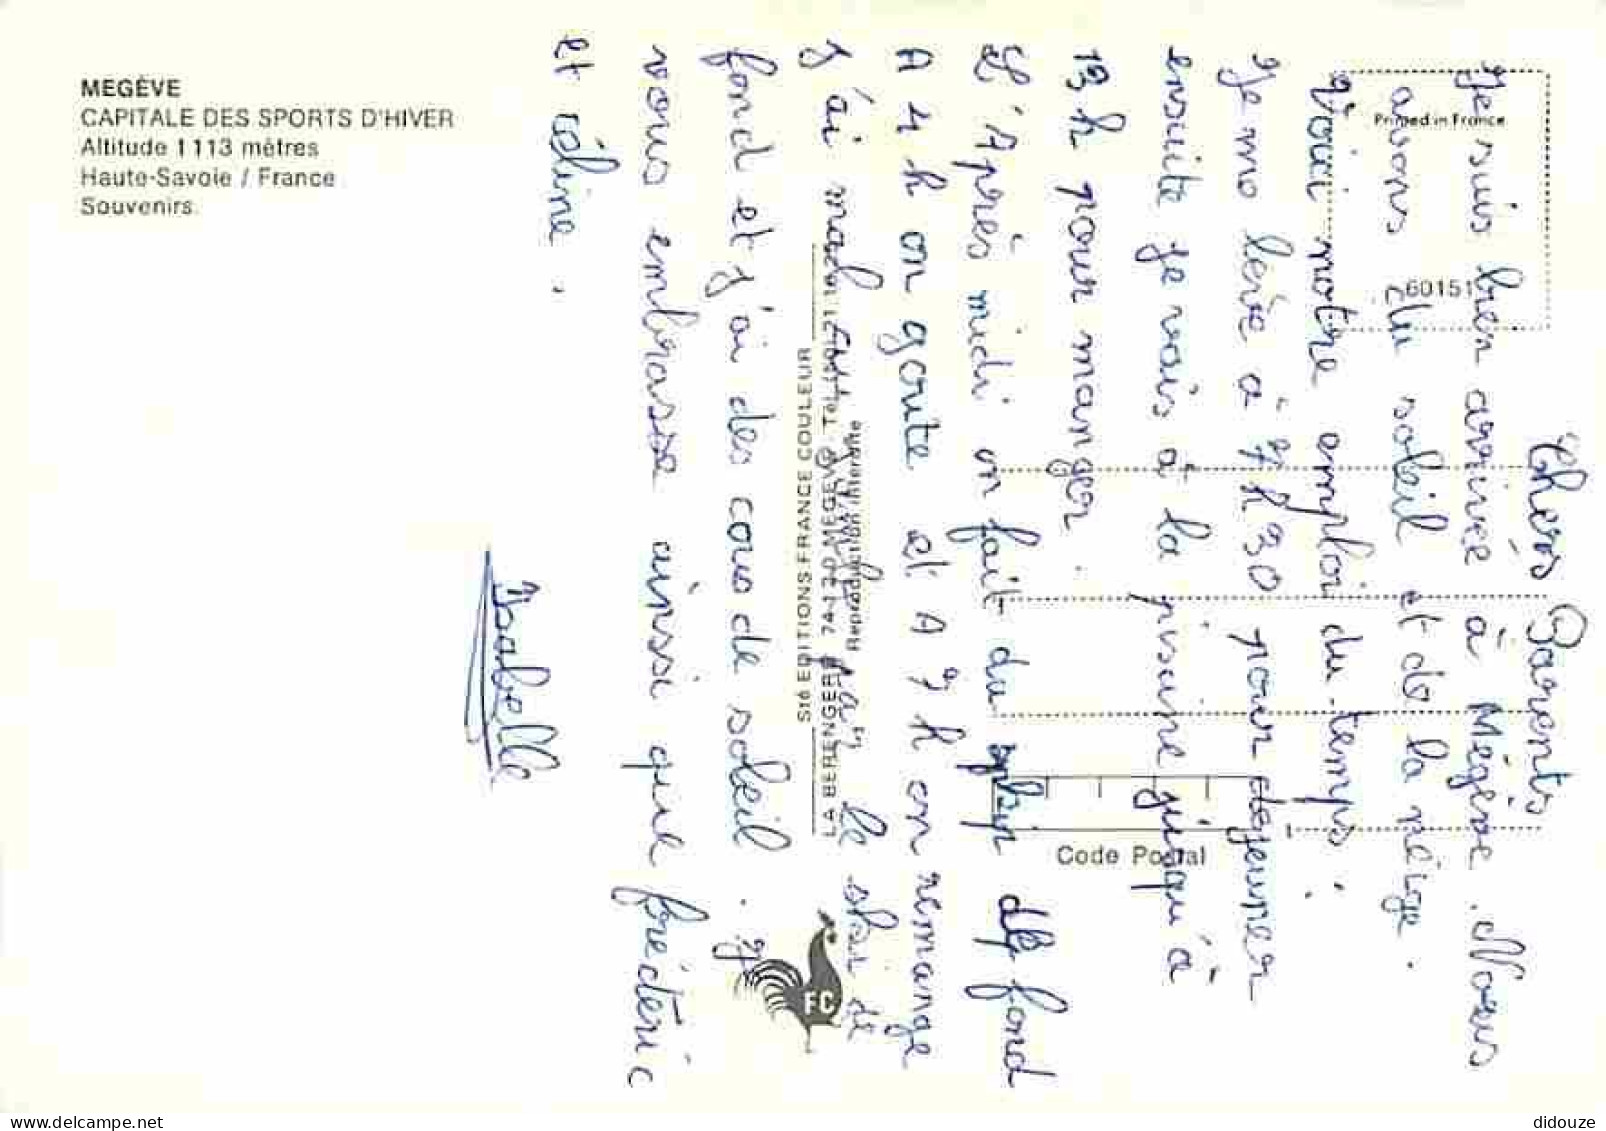 MEGÈVE
CAPITALE DES SPORTS D'HIVER
Altitude 1113 mètres
Haute-Savoie / France
Souvenirs.
Printed in France
60151
Chers Parents
Je suis bien arrivée à Mégève. Nous
avons du soleil et de la neige.
Voici notre emploi du temps :
Je me lève à 7h30 pour dejeuner
ensuite je vais à la piscine jusqu'à
13h pour manger.
L'Après midi on fait du ski de fond
A 4 h on goute et A 7 h on remange
J'ai mal le ski de
fond et j'ai des cous de soleil. Je
vous embrasse ainsi que frédéric
et céline.
Isabelle
Sté EDITIONS FRANCE COULEUR
LA BERENGERE 74120 MEGEVE Tél.
Reproduction interdite
Code Postal
FC
delcampe.net
didouze